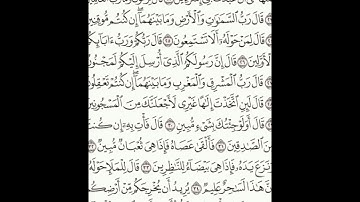 قَالَ رَبُّ ٱلسَّمَٰوَٰتِ وَٱلۡأَرۡضِ وَمَا بَيۡنَهُمَآۖ إِن كُنتُم مُّوقِنِينَ
قَالَ لِمَنۡ حَوۡلَهُۥٓ أَلَا تَسۡتَمِعُونَ ٢٥ قَالَ رَبُّكُمۡ وَرَبُّ ءَابَآئِكُ
قَالَ إِنَّ رَسُولَكُمُ ٱلَّذِيٓ أُرۡسِلَ إِلَيۡكُمۡ لَمَجۡنُو
قَالَ رَبُّ ٱلۡمَشۡرِقِ وَٱلۡمَغۡرِبِ وَمَا بَيۡنَهُمَآۖ إِن كُنتُمۡ تَعۡقِلُو
قَالَ لَئِنِ ٱتَّخَذۡتَ إِلَٰهًا غَيۡرِي لَأَجۡعَلَنَّكَ مِنَ ٱلۡمَسۡجُونِينَ
قَالَ أَوَلَوۡ جِئۡتُكَ بِشَيۡءٖ مُّبِينٖ ٣٠ قَالَ فَأۡتِ بِهِۦٓ إِن كُنتَ
مِنَ ٱلصَّٰدِقِينَ ٣١ فَأَلۡقَىٰ عَصَاهُ فَإِذَا هِيَ ثُعۡبَانٞ مُّبِينٞ ٣٢
وَنَزَعَ يَدَهُۥ فَإِذَا هِيَ بَيۡضَآءُ لِلنَّٰظِرِينَ ٣٣ قَالَ لِلۡمَلَإِ حَوۡلَهُۥٓ
إِنَّ هَٰذَا لَسَٰحِرٌ عَلِيمٞ ٣٤ يُرِيدُ أَن يُخۡرِجَكُم مِّنۡ أَرۡضِكُ